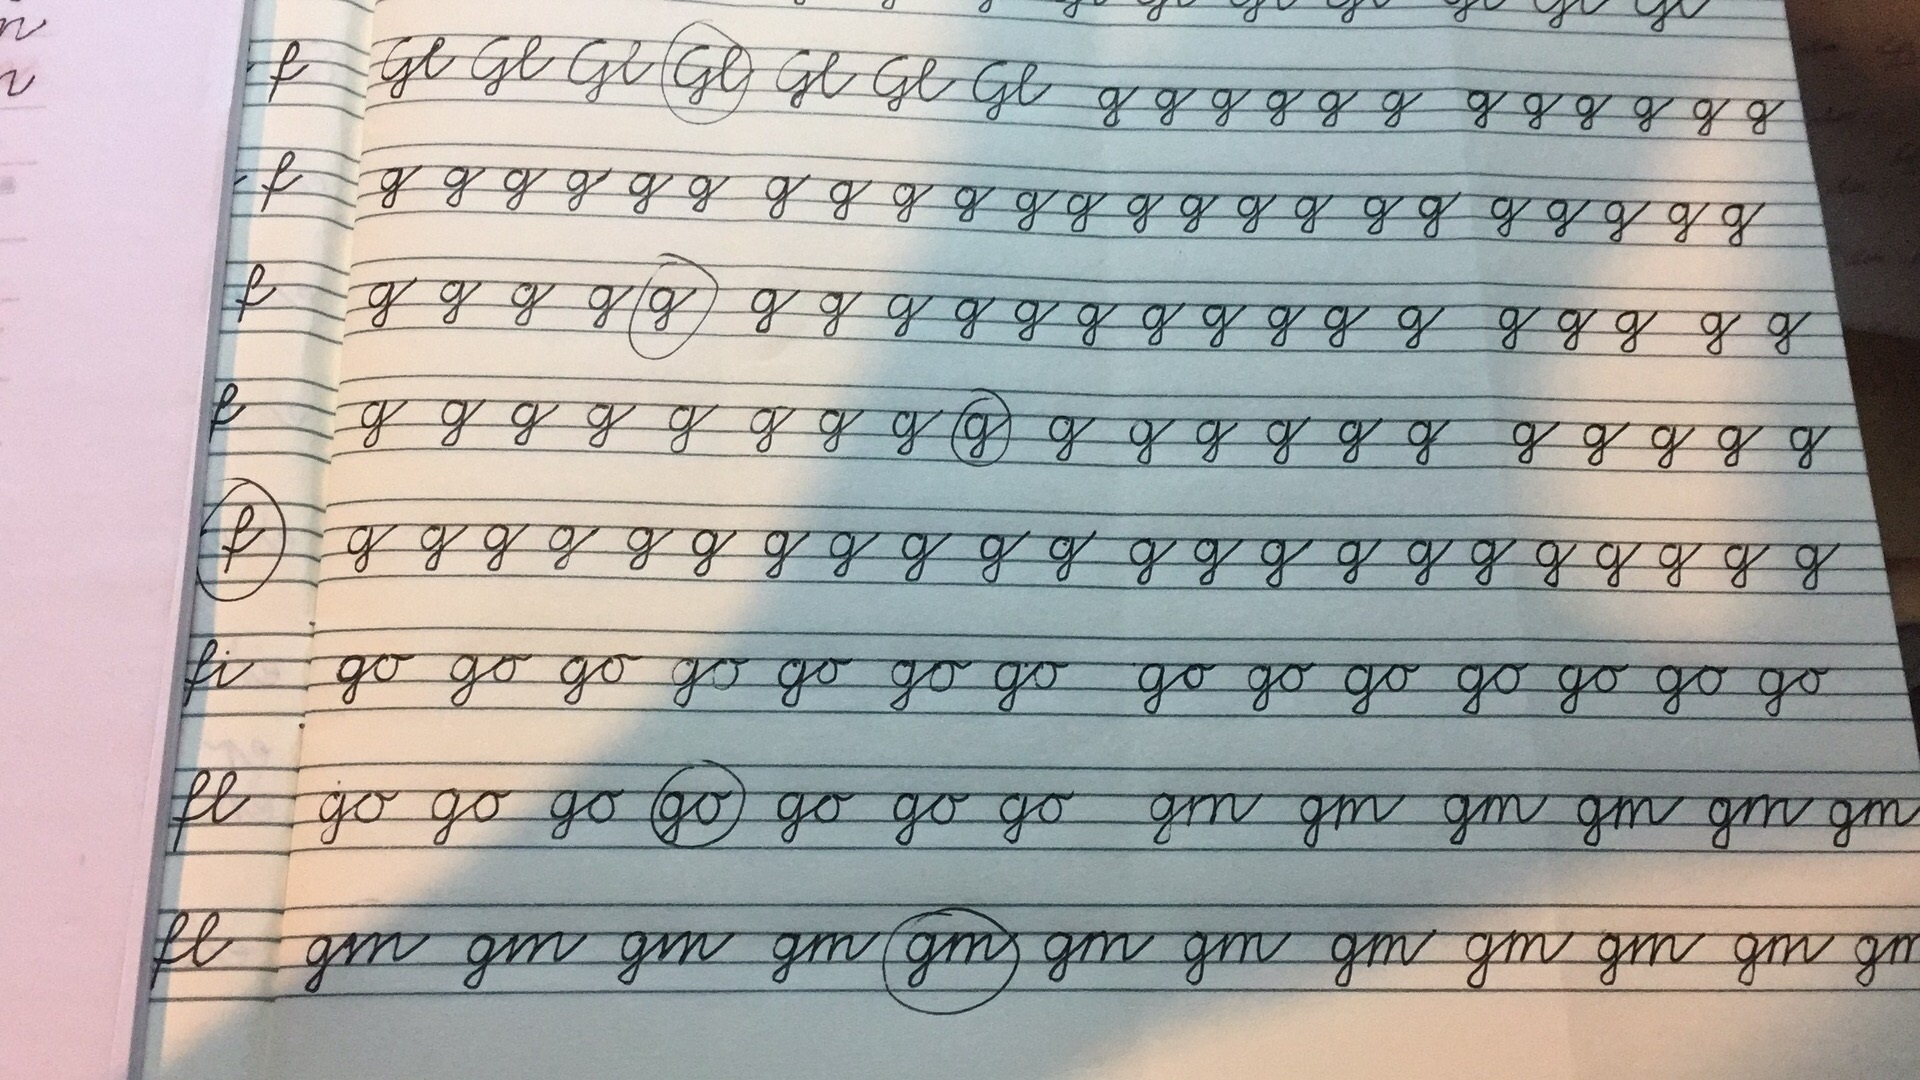 f Gl Gl Gl Gl Gl Gl Gl g g g g g g g g g g g g
f g g g g g g g g g g g g g g g g g g g g g g g
f g g g g g g g g g g g g g g g g g g g g g
f g g g g g g g g g g g g g g g g g g g g
f g g g g g g g g g g g g g g g g g g g g g g
fi go go go go go go go go go go go go go go
fl go go go go go go go gm gm gm gm gm gm
fl gm gm gm gm gm gm gm gm gm gm gm gm